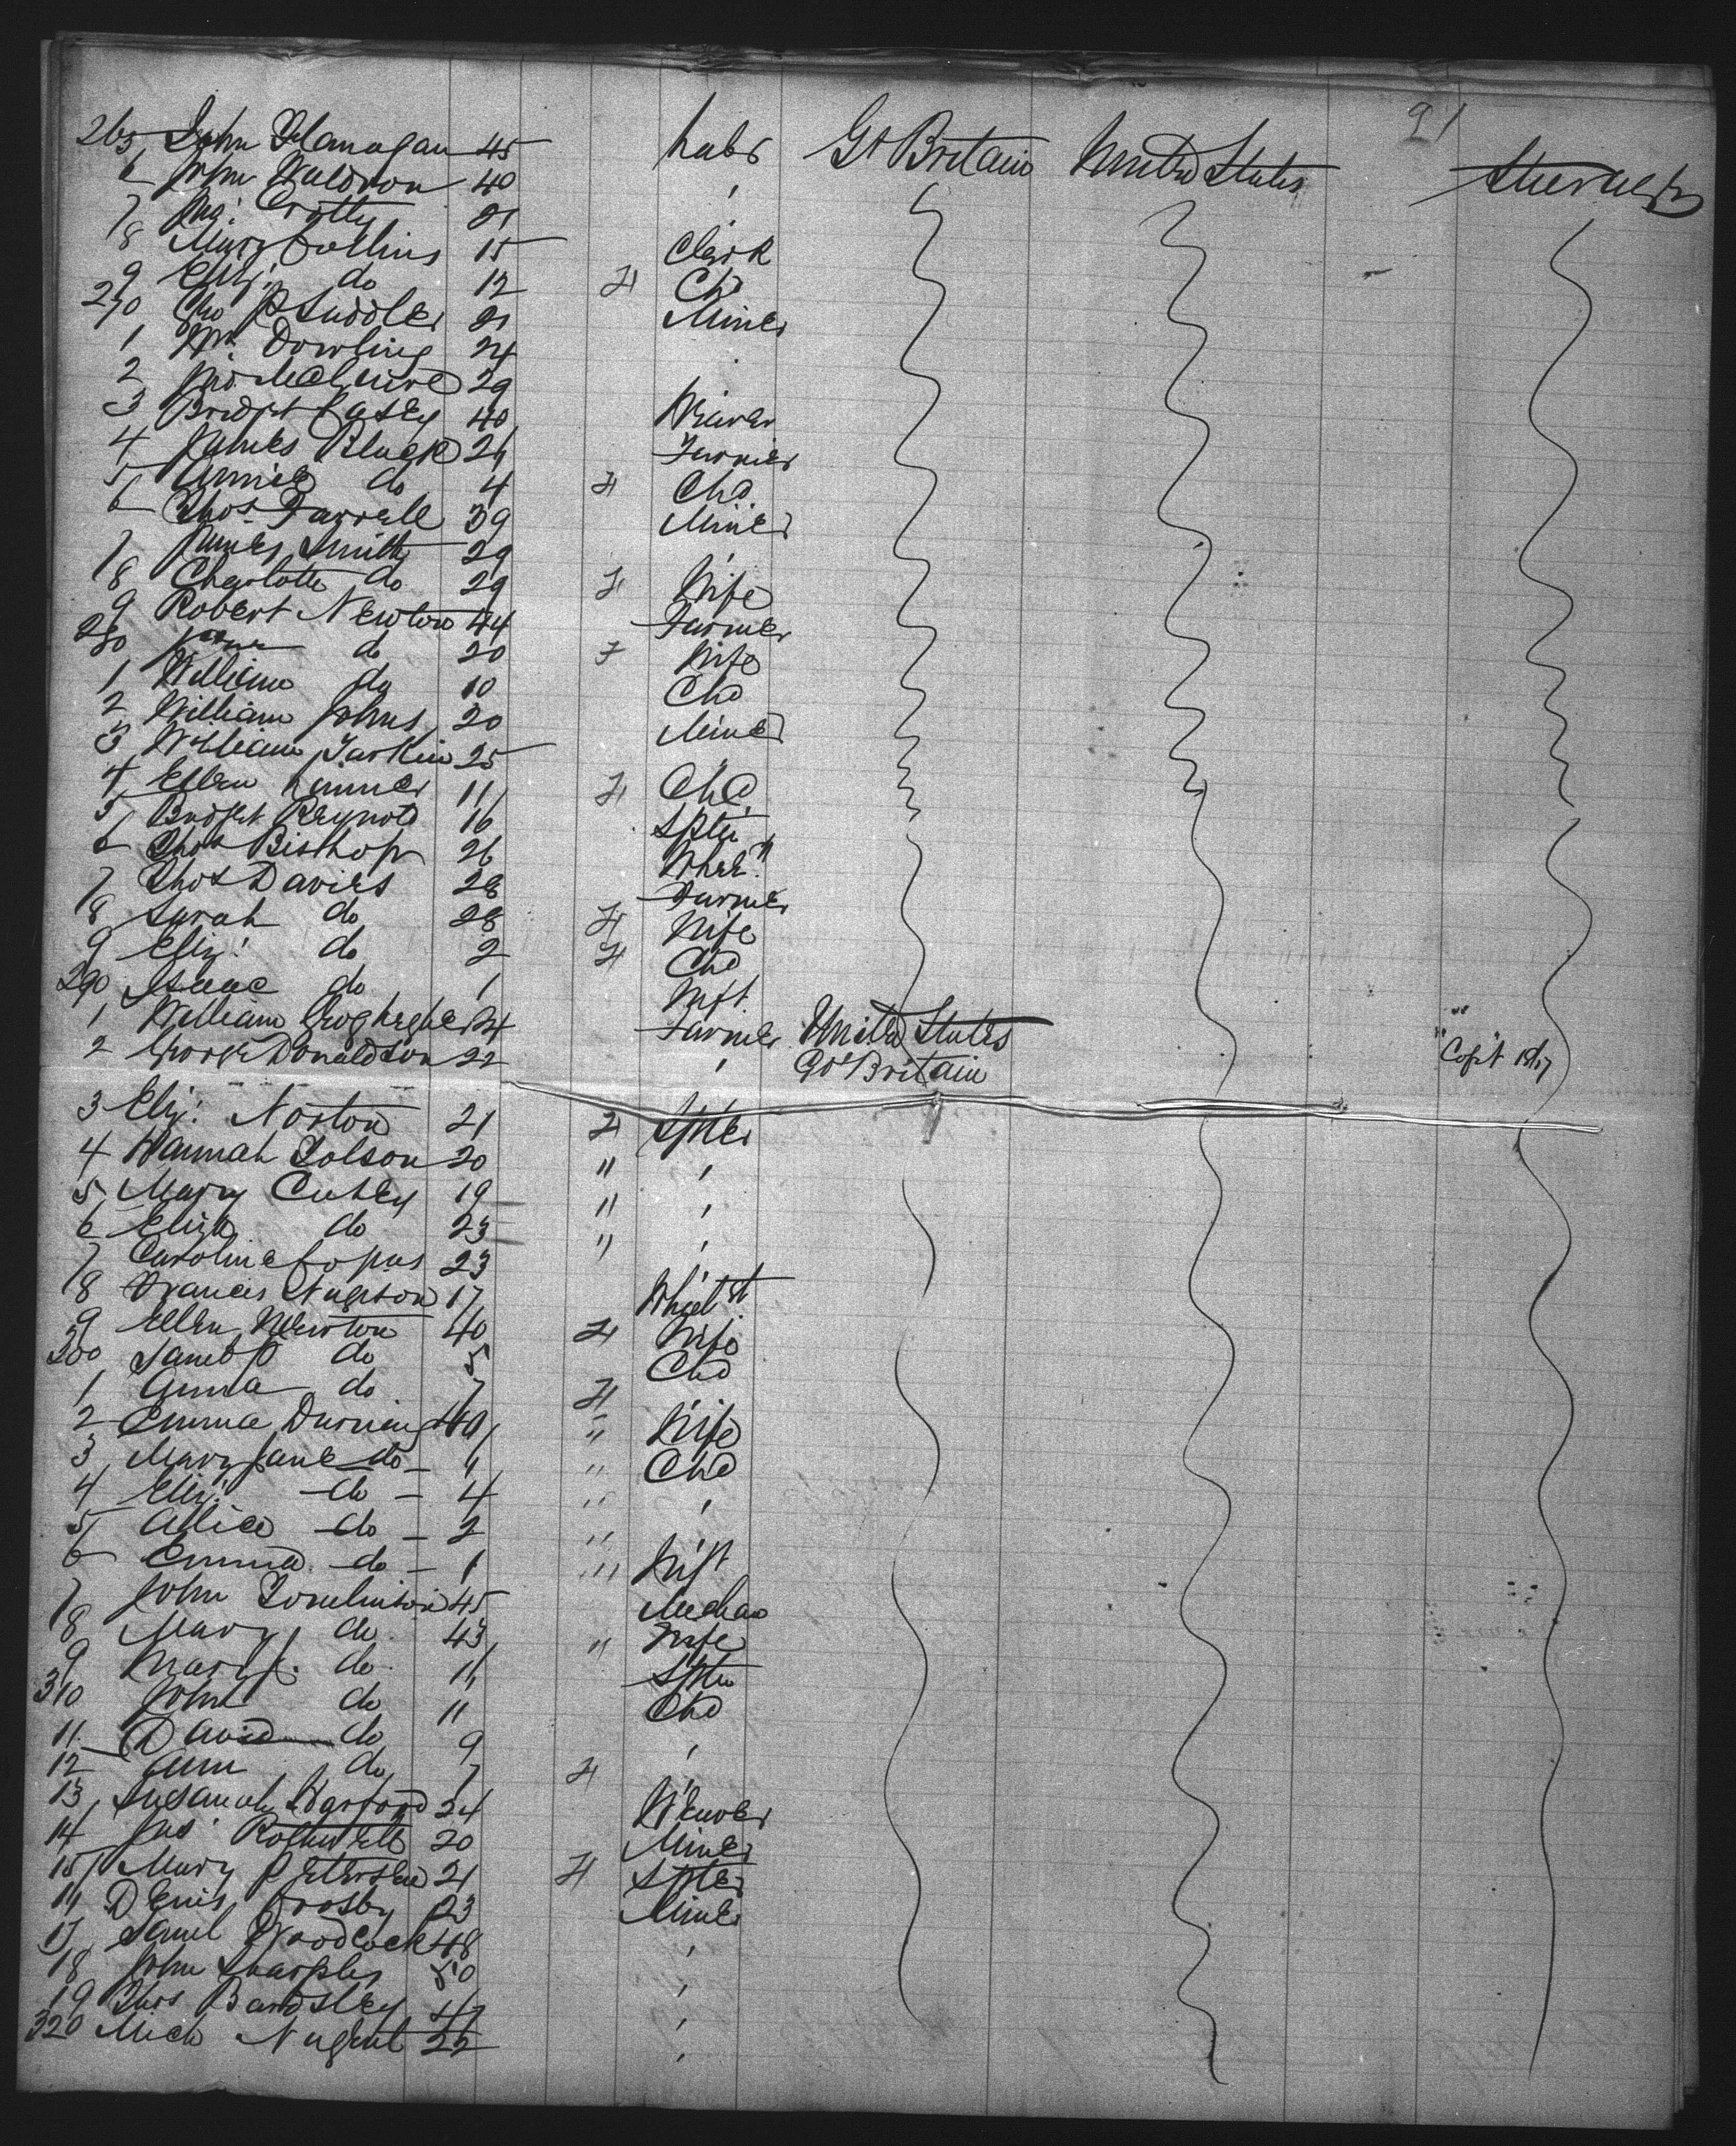 91
265 John Flanagan 45 Labr Gt Britain United States Steerage
6 John Waldron 40 '
7 Crotty 21
8 Mary Collins 15 Clerk
9 Eliz: do 12 F Chd
270 Saddler 21 Miner
1 Wm Dowling 24
2 Jno McClure 29
3 Bridgt Casey 40 Weaver
4 James Black 26 Farmer
5 Annie do 4 F Chd
6 Thos Farrell 39 Miner
7 James Smith 29 '
8 Charlotte do 29 F Wife
9 Robert Newton 44 Farmer
280 do 20 F Wife
1 William do 10 Chd
2 William Johns 20 Miner
3 William 25
4 Ellen 11 F Chd
5 Bridget Reynold 16 Spter
6 Thos Bishop 26
7 Thos Davies 28 Farmer
8 Sarah do 28 F Wife
9 Eliz: do 2 F Chd
290 Isaac do 1 Inft
1 William Geoghegher 24 Farmer United States
2 George Donaldson 22 ' Gt Britain
3 Eliz: Norton 21 F Spter
4 Hannah Tolson 20 " '
5 Mary 19 " '
6 Eliza do 23 " '
7 Caroline Copus 23 '
8 Francis 17
9 Ellen Newton 40 F Wife
300 do 5 Chd
1 Anna do 7 F
2 Emma 40 " Wife
3 Mary Jane do 6 " Chd
4 Eliz: do 4 " '
5 Alice do 2 " '
6 Emma do 1 " Inft
7 John Tomlinson 45 Mechan
8 Mary do 43 " Wife
9 Mary J. do 16 Spter
310 John do 11 Chd
11 David do 9 '
12 Ann do 7 F '
13 Susanah Harford 24 Weaver
14 Jas Rothwell 20 Miner
15 Mary Petersen 21 F Spter
16 Denis Crosby 23 Miner
17 Saml Woodcock 48 '
18 John Sharples 50 '
19 Thos Bardsley 47 '
320 Mich Nugent 22 '